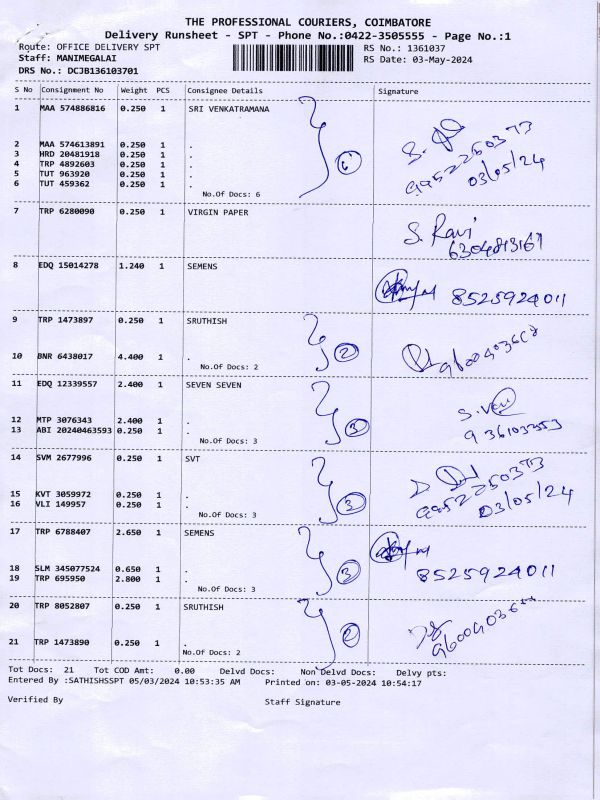 THE PROFESSIONAL COURIERS, COIMBATORE
Delivery Runsheet - SPT - Phone No.:0422-3505555 - Page No.:1
Route: OFFICE DELIVERY SPT RS No.: 1361037
Staff: MANIMEGALAI RS Date: 03-May-2024
DRS No.: DCJB136103701
S No Consignment No Weight PCS Consignee Details Signature
1 MAA 574886816 0.250 1 SRI VENKATRAMANA
2 MAA 574613891 0.250 1 .
3 HRD 20481918 0.250 1 .
4 TRP 4892603 0.250 1 .
5 TUT 963920 0.250 1 .
6 TUT 459362 0.250 1 .
6
9952250373
03/05/24
No.Of Docs: 6
7 TRP 6280090 0.250 1 VIRGIN PAPER
S. Ravi
8 EDQ 15014278 1.240 1 SEMENS
8525924011
9 TRP 1473897 0.250 1 SRUTHISH
10 BNR 6438017 4.400 1 .
2
No.Of Docs: 2
11 EDQ 12339557 2.400 1 SEVEN SEVEN
12 MTP 3076343 2.400 1 .
13 ABI 20240463593 0.250 1 .
3
No.Of Docs: 3
14 SVM 2677996 0.250 1 SVT
15 KVT 3059972 0.250 1 .
16 VLI 149957 0.250 1 .
3
9952250373
03/05/24
No.Of Docs: 3
17 TRP 6788407 2.650 1 SEMENS
18 SLM 345077524 0.650 1 .
19 TRP 695950 2.800 1 .
3
8525924011
No.Of Docs: 3
20 TRP 8052807 0.250 1 SRUTHISH
21 TRP 1473890 0.250 1 .
2
No.Of Docs: 2
Tot Docs: 21 Tot COD Amt: 0.00 Delvd Docs: Non Delvd Docs: Delvy pts:
Entered By :SATHISHSSPT 05/03/2024 10:53:35 AM Printed on: 03-05-2024 10:54:17
Verified By Staff Signature